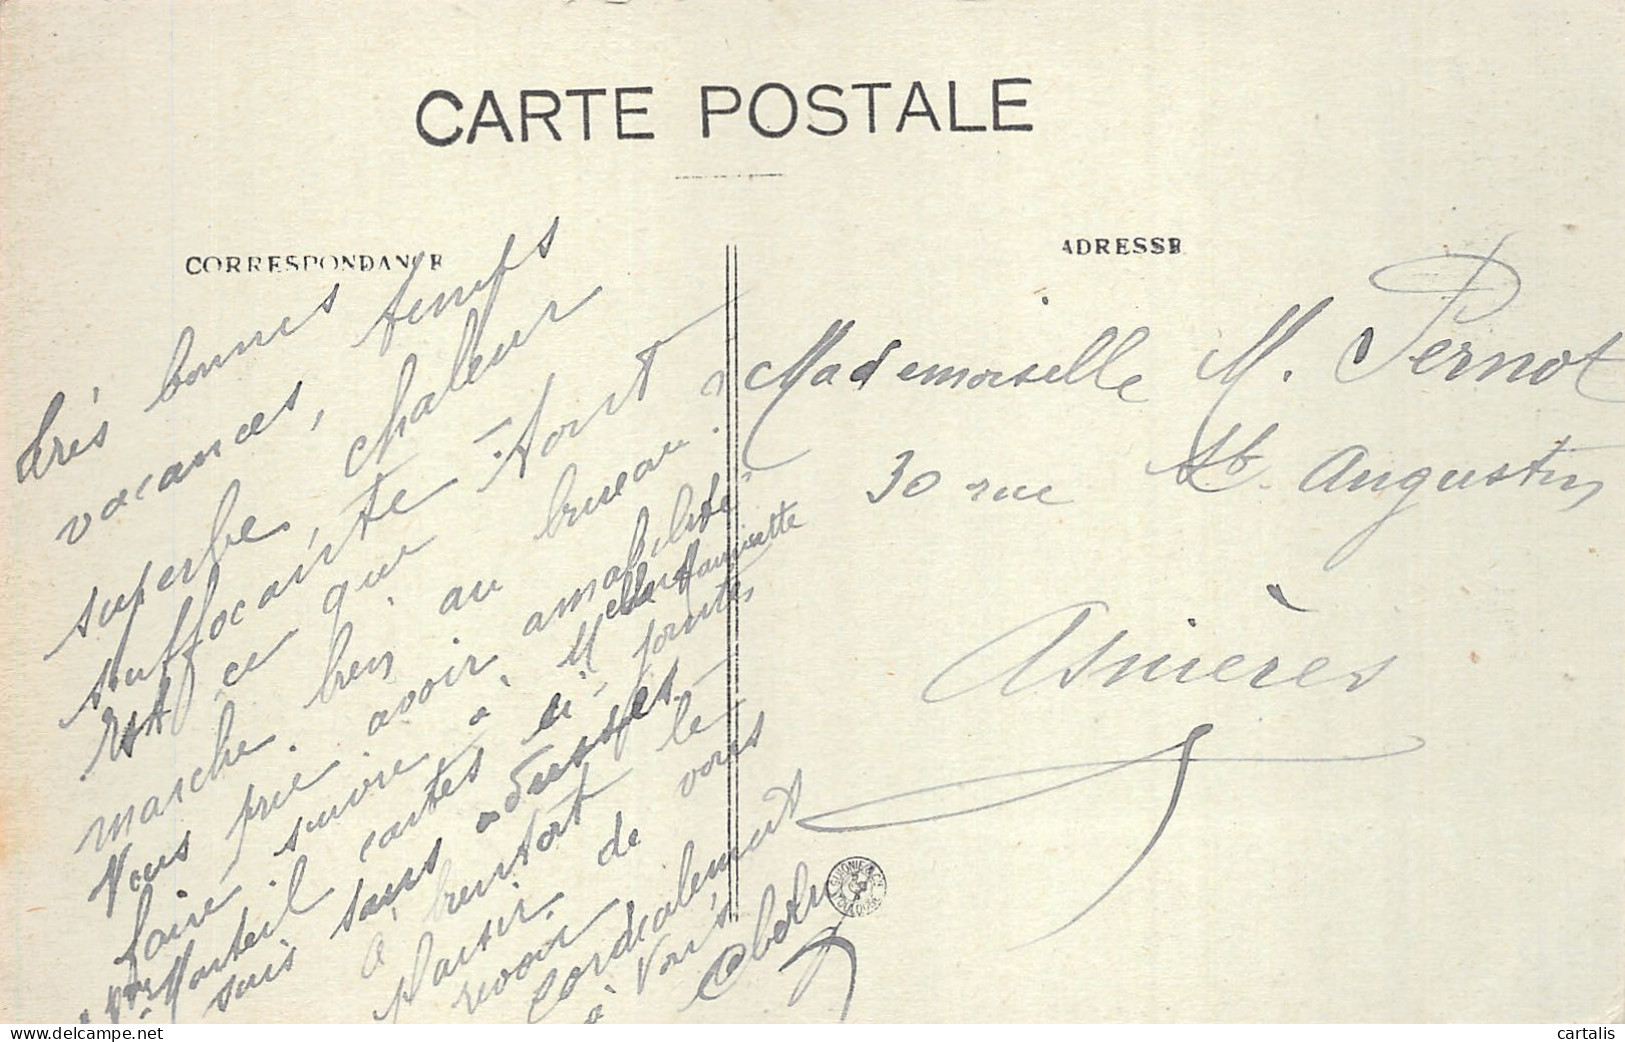 CARTE POSTALE
CORRESPONDANCE
ADRESSE
très bonnes
vacances, temps
superbe, chaleur
suffocante
Est ce que tout
marche bien au bureau ?
Vous prie avoir amabilité
faire suivre à Melle Henriette
Monteil cartes ci jointes
suis sans adresses.
à bientôt le
plaisir de vous
revoir
Cordialement
à Vous
Mademoiselle M. Pernot
30 rue St. Augustin
Asnières
TOULOUSE
cartalis